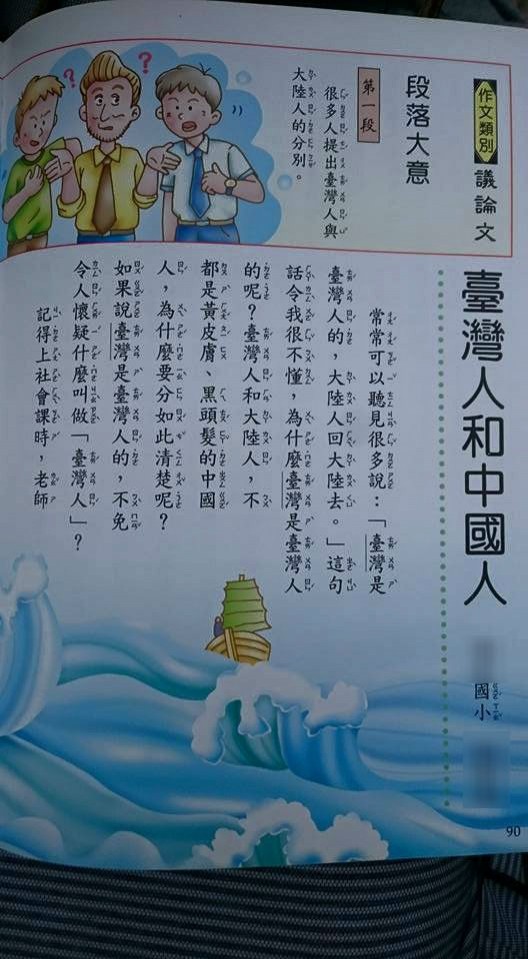 作文類別 議論文
段落大意
第一段
很多人提出臺灣人與
大陸人的分別。
臺灣人和中國人
國小
常常可以聽見很多說：「臺灣是
臺灣人的，大陸人回大陸去。」這句
話令我很不懂，為什麼臺灣是臺灣人
的呢？臺灣人和大陸人，不
都是黃皮膚、黑頭髮的中國
人，為什麼要分如此清楚呢？
如果說臺灣是臺灣人的，不免
令人懷疑什麼叫做「臺灣人」？
記得上社會課時，老師
90